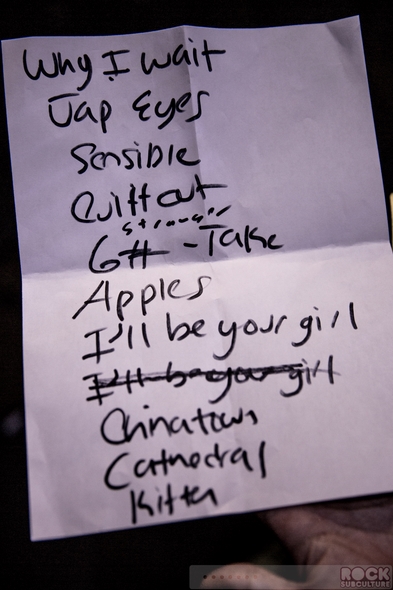 Why I wait
Jap Eyes
Sensible
Quilt out
stronger
G# - Take
Apples
I'll be your girl
I'll be your girl
Chinatown
Cathedral
Kitten
ROCK
SUBCULTURE